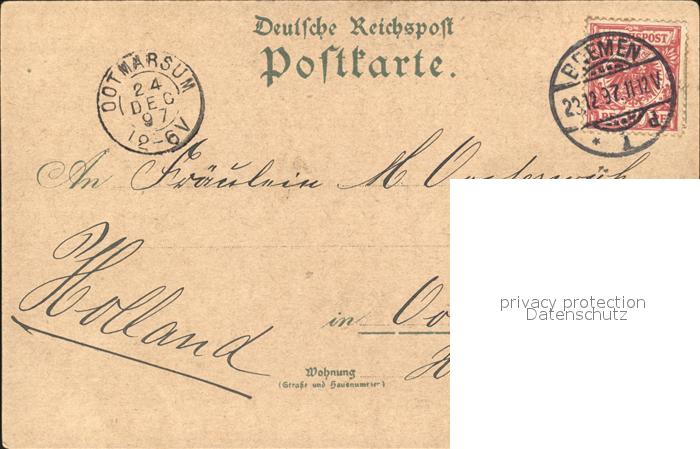 Deutsche Reichspost
Postkarte.
OOTMARSUM
24
DEC
97
12-6V
BREMEN
23.12.97.11-12V
* 1 d
An Fräulein M. Oosterwijk
Holland
in
Wohnung
(Straße und Hausnummer)
privacy protection
Datenschutz